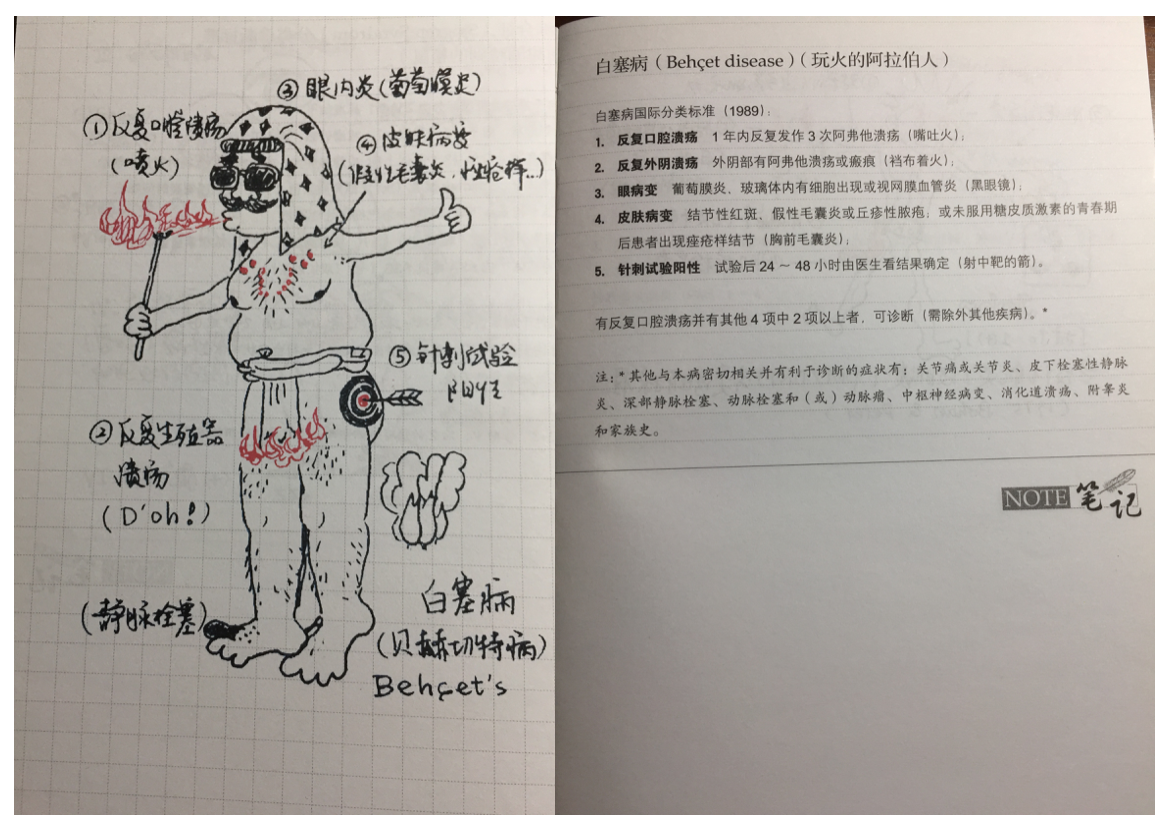 ③ 眼内炎(葡萄膜炎)
① 反复口腔溃疡
(喷火)
④ 皮肤病变
(假性毛囊炎、痤疮样..)
⑤ 针刺试验
阳性
② 反复生殖器
溃疡
(D'oh!)
(静脉栓塞)
白塞病
(贝赫切特病)
Behçet's
白塞病(Behçet disease)(玩火的阿拉伯人)
白塞病国际分类标准(1989):
1. 反复口腔溃疡 1年内反复发作3次阿弗他溃疡(嘴吐火);
2. 反复外阴溃疡 外阴部有阿弗他溃疡或瘢痕(裆布着火);
3. 眼病变 葡萄膜炎、玻璃体内有细胞出现或视网膜血管炎(黑眼镜);
4. 皮肤病变 结节性红斑、假性毛囊炎或丘疹性脓疱;或未服用糖皮质激素的青春期
后患者出现痤疮样结节(胸前毛囊炎);
5. 针刺试验阳性 试验后24～48小时由医生看结果确定(射中靶的箭)。
有反复口腔溃疡并有其他4项中2项以上者,可诊断(需除外其他疾病)。*
注:*其他与本病密切相关并有利于诊断的症状有:关节痛或关节炎、皮下栓塞性静脉
炎、深部静脉栓塞、动脉栓塞和(或)动脉瘤、中枢神经病变、消化道溃疡、附睾炎
和家族史。
NOTE 笔记